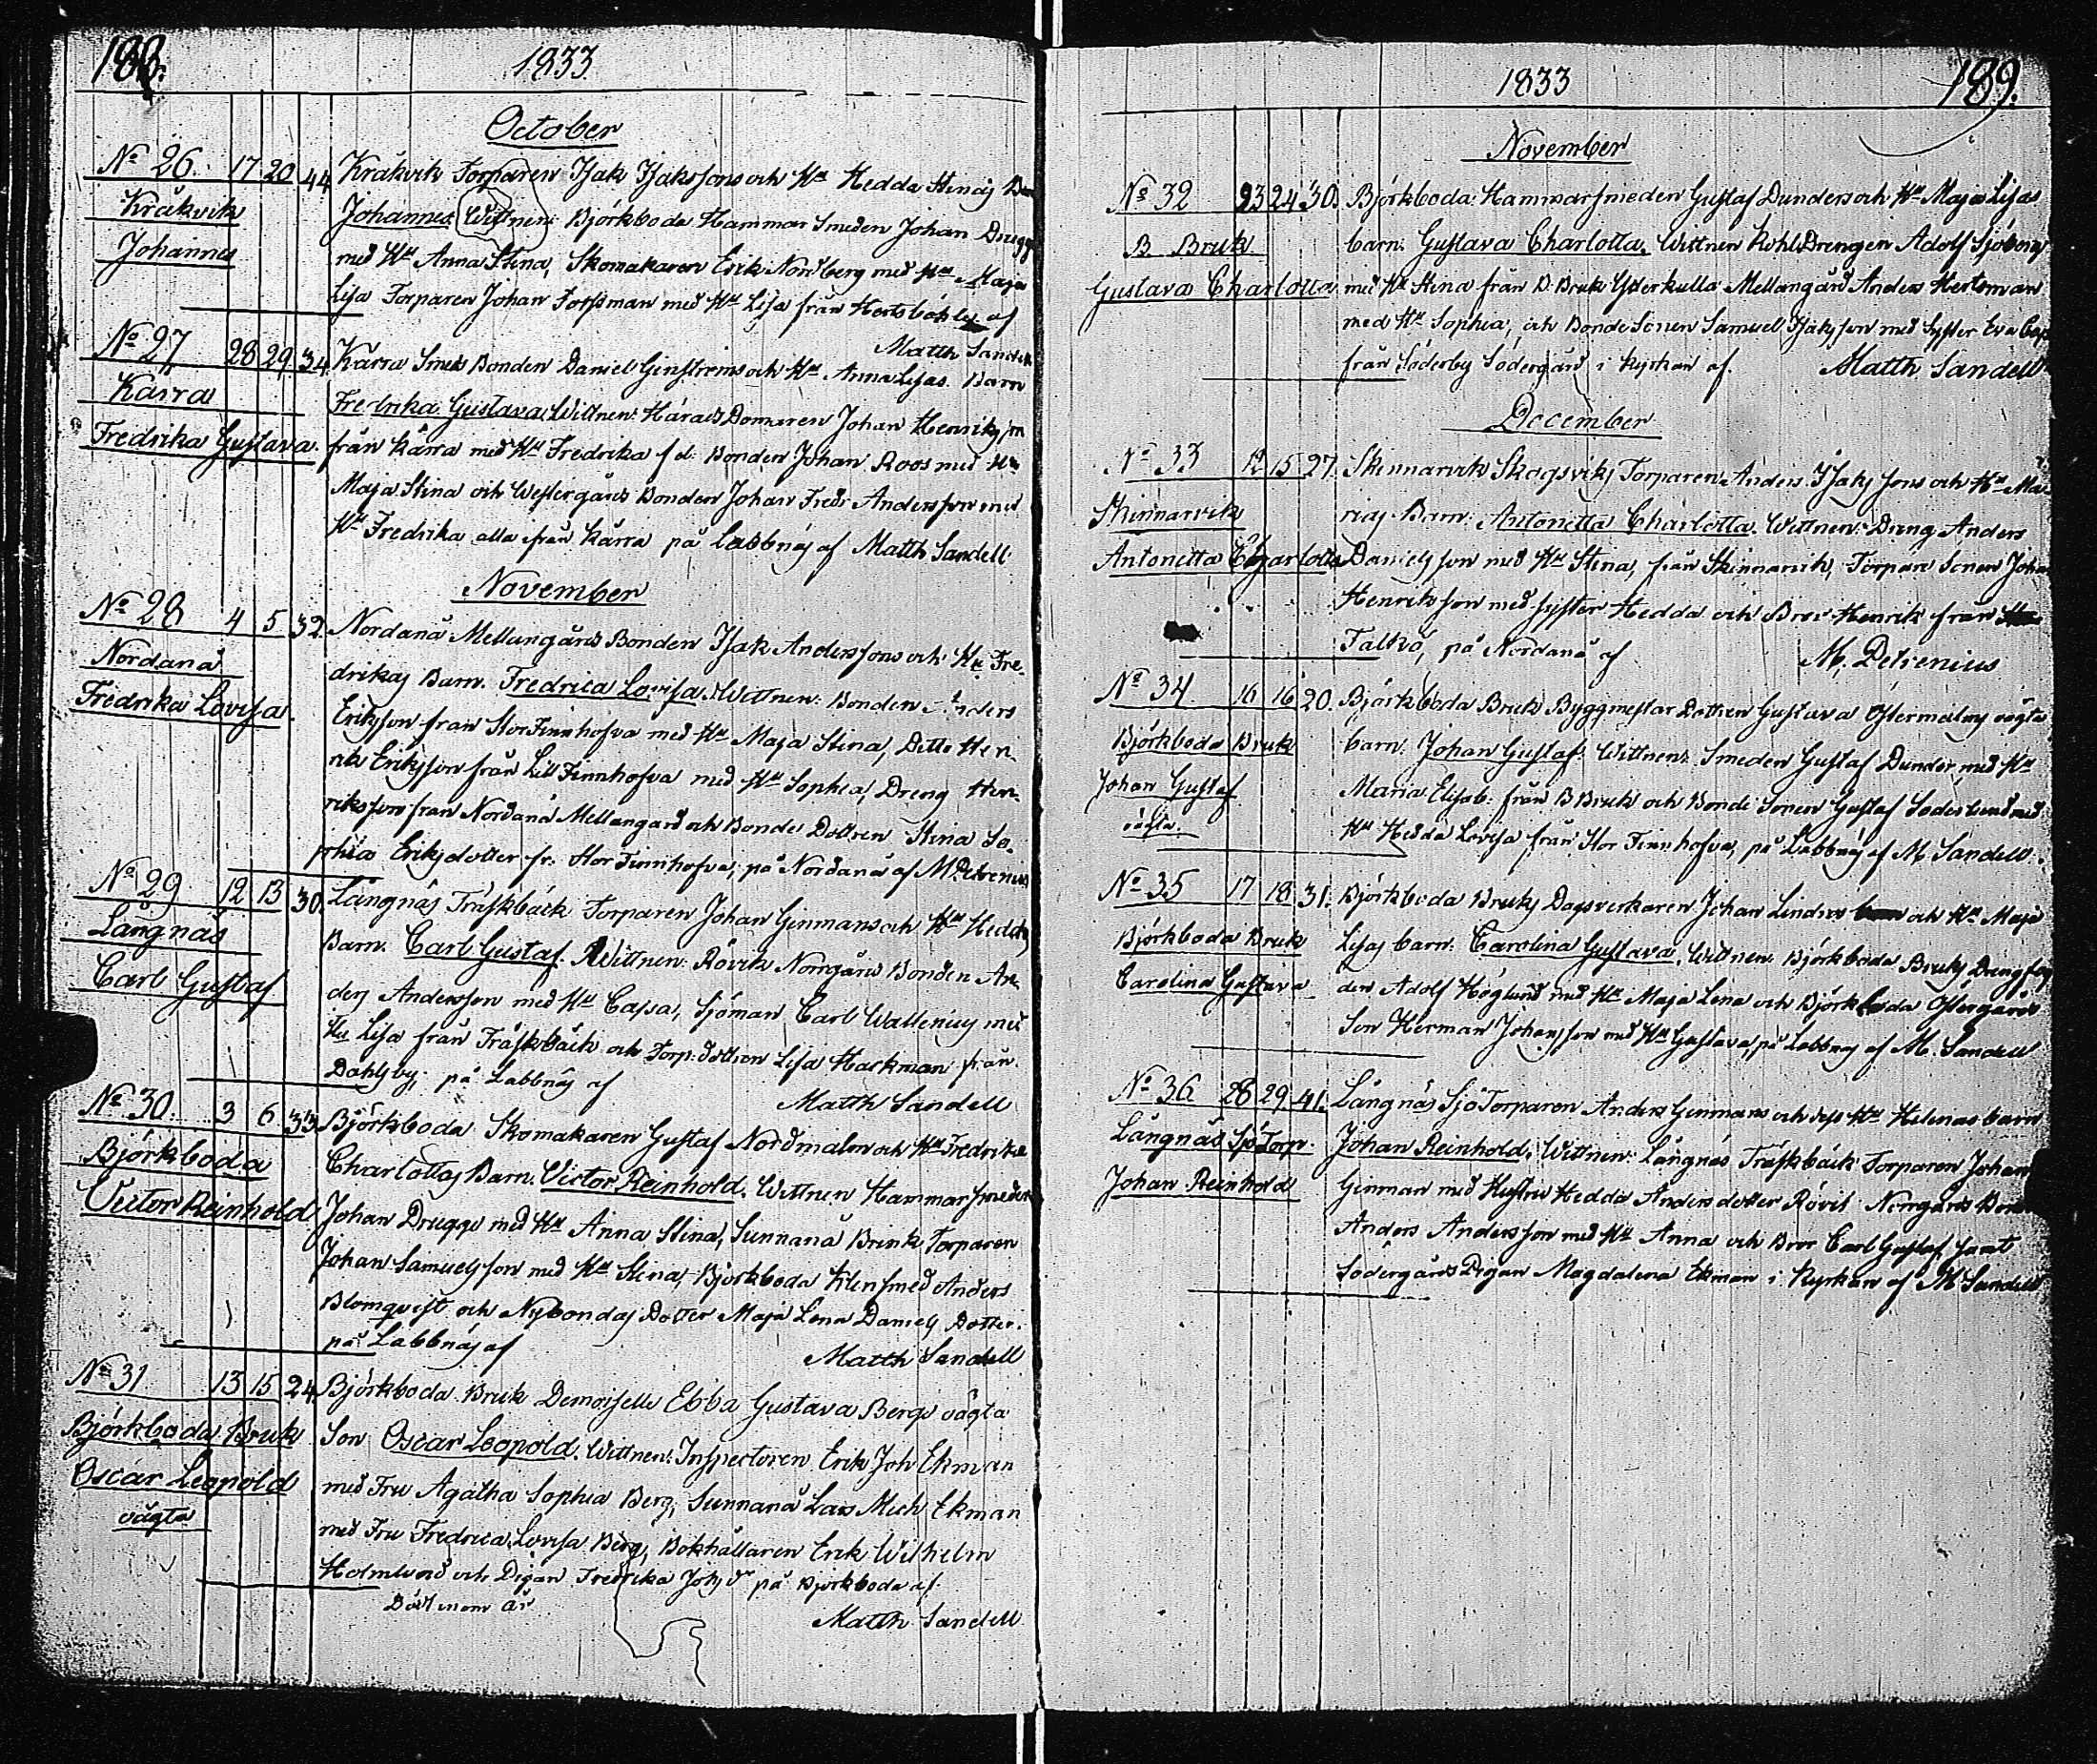 188.
1833
October
No 26. 17 20 44 Kråkvik Torparen Isak Isakssons och Hu Hedda Stinas
Kråkvik
Johannes
Johannes. Wittnen: Björkboda Hammar Smeden Johan Drugge
med Hu Anna Stina, Skomakaren Erik Nordberg med Hu Maja
Lisa Torparen Johan Forssman med Hu Lisa från Hertsböhle af
Matth Sandell
No 27 28 29 34 Kärra Smeds Bonden Daniel Genströms och Hu Anna Lisas Barn
Kärra
Fredrika Gustava.
Fredrika Gustava. Wittnen: Härads Domaren Johan Henriksson
från Kärra med Hu Fredrika f d. Bonden Johan Roos med Hu
Maja Stina och Westergårds Bonden Johan Fredr Andersson med
Hu Fredrika alla ifrån Kärra på Labbnäs af Matth Sandell
November
No 28 4 5 32. Nordanå Mellangårds Bonden Isak Anderssons och Hu Fre-
Nordanå
Fredrika Lovisa.
drikas Barn. Fredrica Lovisa. Wittnen: Bonden Anders
Eriksson från Stor Finnhofva med Hu Maja Stina, Ditto Hen-
rik Eriksson från Lill Finnhofva med Hu Sophia, Dreng Hen-
riksson från Nordanå Mellangård och Bonde Dottren Stina So-
phia Eriksdotter fr. Stor Finnhofva, på Nordanå af M Petrenius
No 29 12 13 30. Långnäs Träskbäck Torparen Johan Genmans och Hu Heddas
Långnäs
Carl Gustaf
Barn. Carl Gustaf. Wittnen: Rövik Norrgårds Bonden An-
ders Andersson med Hu Cajsa, Sjöman Carl Wallenius med
Hu Lisa från Träskbäck och Torp: dottren Lisa Hackman från
Dahlsby, på Labbnäs af
Matth Sandell
No 30. 3 6 33 Björkboda Skomakaren Gustaf Nordmalm och Hu Fredrika
Björkboda
Victor Reinhold
Charlottas Barn. Victor Reinhold. Wittnen Hammarsmeden
Johan Drugge med Hu Anna Stina, Sunnanå Brink Torparen
Johan Samuelsson med Hu Stina, Björkboda Klensmed Anders
Blomqvist och Nybondas Dotter Maja Lena Daniels Dotter.
på Labbnäs af
Matth Sandell
No 31 13 15 24. Björkboda Bruk Demoiselle Ebba Gustava Bergs oägta
Björkboda Bruk
Oscar Leopold
oägta
Son Oscar Leopold. Wittnen: Inspectoren Erik Joh Ekman
med Fru Agatha Sophia Berg, Sunnanå Lars Mich Ekman
med Fru Fredrica Lovisa Berg, Bokhållaren Erik Wilhelm
Holmlund och Pigan Fredrika Johsdr på Björkboda af
Död inom år
Matth Sandell
1833
189.
November
No 32 23 24 30. Björkboda Hammarsmeden Gustaf Dunders och Hu Maja Lisas
B Bruk
Gustava Charlotta
barn. Gustava Charlotta. Wittnen KohlDrengen Adolf Sjöberg
med Hu Stina från B Bruk Ytterkulla Mellangård Anders Hertsman
med Hu Sophia, och Bonde Sonen Samuel Isaksson med Syster Eva
från Söderby Södergård i Kyrkan af. Matth Sandell
December
No 33 12 15 27. Skinnarvik Skogsviks Torparen Anders Isaks sons och Hu Ma-
Skinnarvik
Antonetta Charlotta
rias Barn: Antonetta Charlotta. Wittnen: Dreng Anders
Danielsson med Hu Stina, från Skinnarvik, Torpare Sonen Johan
Henriksson med syster Hedda och Bror Henrik från
Falkö, på Nordanå af M, Petrenius
No 34. 16 16 20. Björkboda Bruk Byggmestar Dottren Gustava Östermalms oägta
Björkboda Bruk
Johan Gustaf
oägta.
barn. Johan Gustaf. Wittnen: Smeden Gustaf Dunder med Hu
Maria Elisab: från B Bruk och Bonde Sonen Gustaf Söderlund med
Hu Hedda Lovisa från Stor Finnhofva, på Labbnäs af M Sandell.
No 35 17 18 31. Björkboda Bruks Dagsverkaren Johan Linders och Hu Maja
Björkboda Bruk
Carolina Gustava
Lisas barn. Carolina Gustava. Wittnen Björkboda Bruks
den Adolf Höglund med Hu Maja Lena och Björkboda Östergårds
Son Herman Johansson med Hu Gustava, på Labbnäs af M. Sandell
No 36 28 29 41. Långnäs Sjö Torparen Anders Genmans och dess Hu Helenas barn
Långnäs Sjö Torp.
Johan Reinhold
Johan Reinhold. Wittnen: Långnäs Träskbäck Torparen Johan
Genman med Hustru Hedda Andersdotter Rövik Norrgårds
Anders Andersson med Hu Anna och Bror Carl Gustaf samt
Södergårds Pigan Magdalena Ekman i Kyrkan af M Sandell